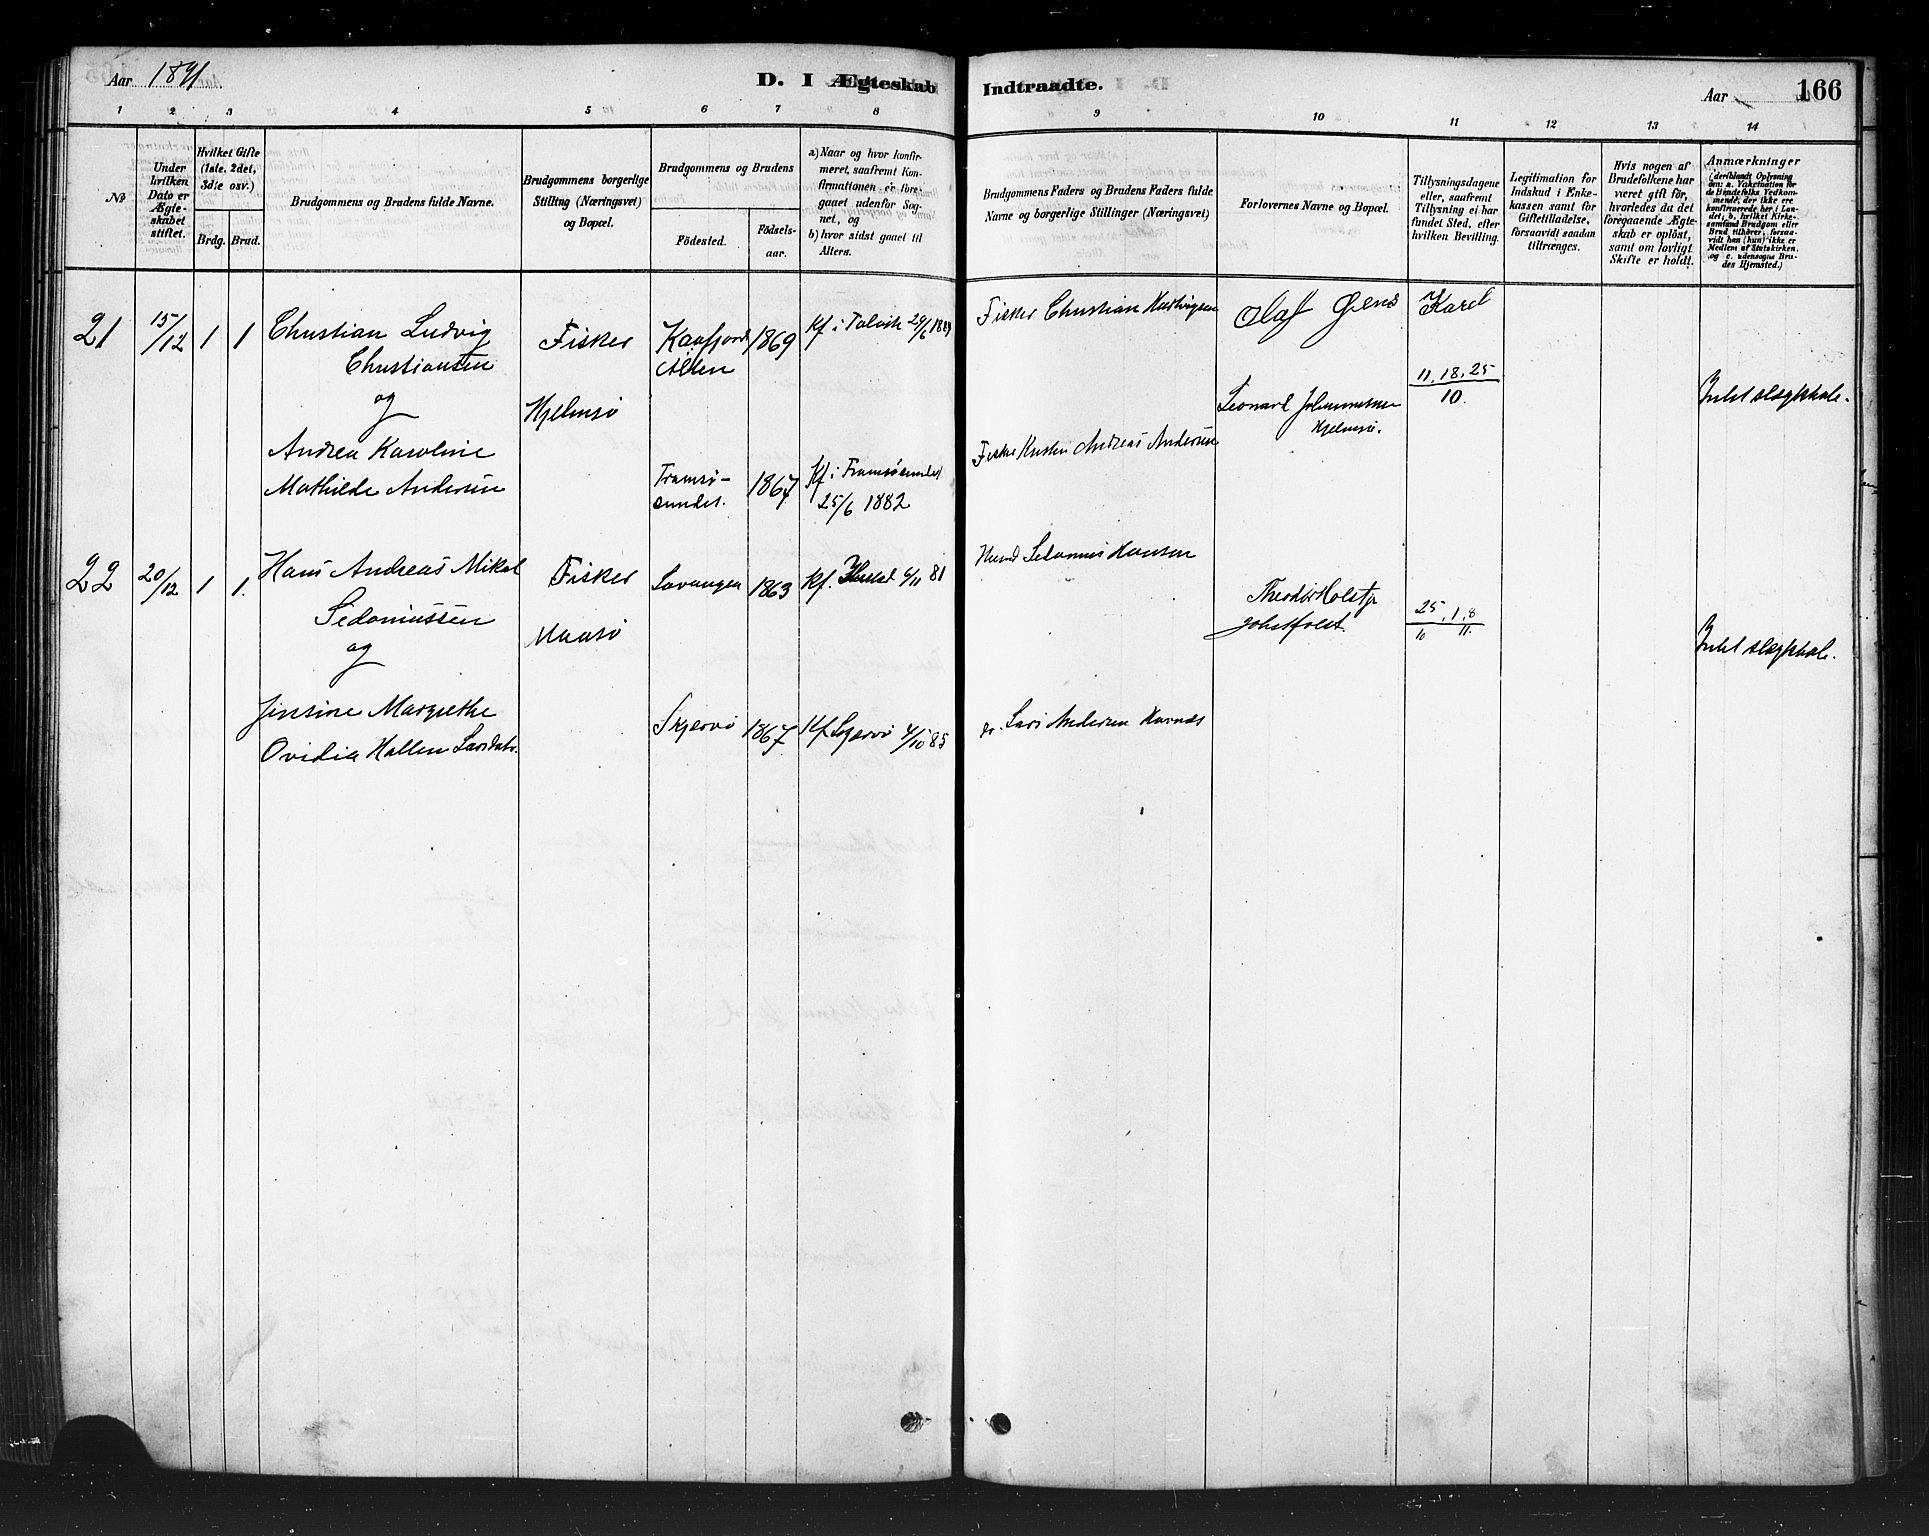 Aar 1891
D. I Ægteskab Indtraadte.
Aar
166
1 2 3 4 5 6 7 8 9 10 11 12 13 14
№
Under hvilken Dato er Ægteskabet stiftet.
Hvilket Gifte (1ste, 2det, 3die osv.)
Brdg. Brud.
Brudgommens og Brudens fulde Navne.
Brudgommens borgerlige Stilling (Næringsvei) og Bopæl.
Brudgommens og Brudens
Födested. Födsels-aar.
a) Naar og hvor konfirmeret, saafremt Konfirmationen er foregaaet udenfor Sognet, og
b) hvor sidst gaaet til Alters.
Brudgommens Faders og Brudens Faders fulde Navne og borgerlige Stillinger (Næringsvei)
Forlovernes Navne og Bopæl.
Tillysningsdagene eller, saafremt Tillysning ei har fundet Sted, efter hvilken Bevilling.
Legitimation for Indskud i Enkekassen samt for Giftetilladelse, forsaavidt saadan tiltrænges.
Hvis nogen af Brudefolkene har været gift för, hvorledes da det foregaaende Ægteskab er oplöst, samt om lovligt Skifte er holdt.
Anmærkninger (deriblandt Oplysning om: a. Vaksination for de Brudefolks Vedkommende, der ikke ere konfirmerede her i Landet; b. hvilket Kirkesamfund Brudgom eller Brud tilhörer, forsaavidt han (hun) ikke er Medlem af Statskirken. og c. udensogns Brudes Hjemsted.)
21 15/12 1 1
Christian Ludvig
Christiansen
og
Andrea Karoline
Mathilde Andersen
Fisker
Hjelmsö
Kaafjord
Alten
1869
Kf. i Talvik 29/6 188
Tromsö-
sundet.
1867
Kf. i Tromsösundet
25/6 1882
Fisker Christian Hartvigsen
Fisker Kristen Andreas Andersen
Olaf Jens Karel
Leonard Johannesen
Hjelmsö.
11. 18. 25
10.
Intet slægtskab.
22 20/12 1 1.
Hans Andreas Mikal
Sedoniussen
og
Jensine Margrethe
Ovidia Hallen Larsdatr.
Fisker
Maasö
Lavangen
1863
Kf. Ibestad 6/11 81
Skjervö
1867
Kf. Skjervö 4/10 85
Sedonius Hansen
Lars Andersen Havnæs
Theodor Holst jr
Joh. Holst.
25. 1. 8
10 11.
Intet slægtskab.